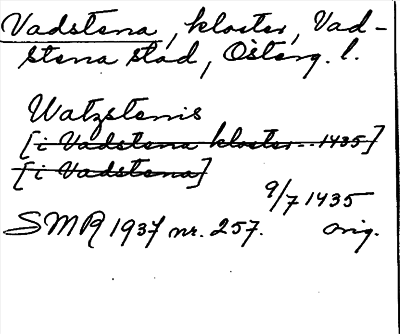 Vadstena, kloster, Vad-
stena stad, Österg. l.
Watzstenis
[i Vadstena kloster... 1435]
[i Vadstena]
9/7 1435
SMR 1937 nr. 257. orig.